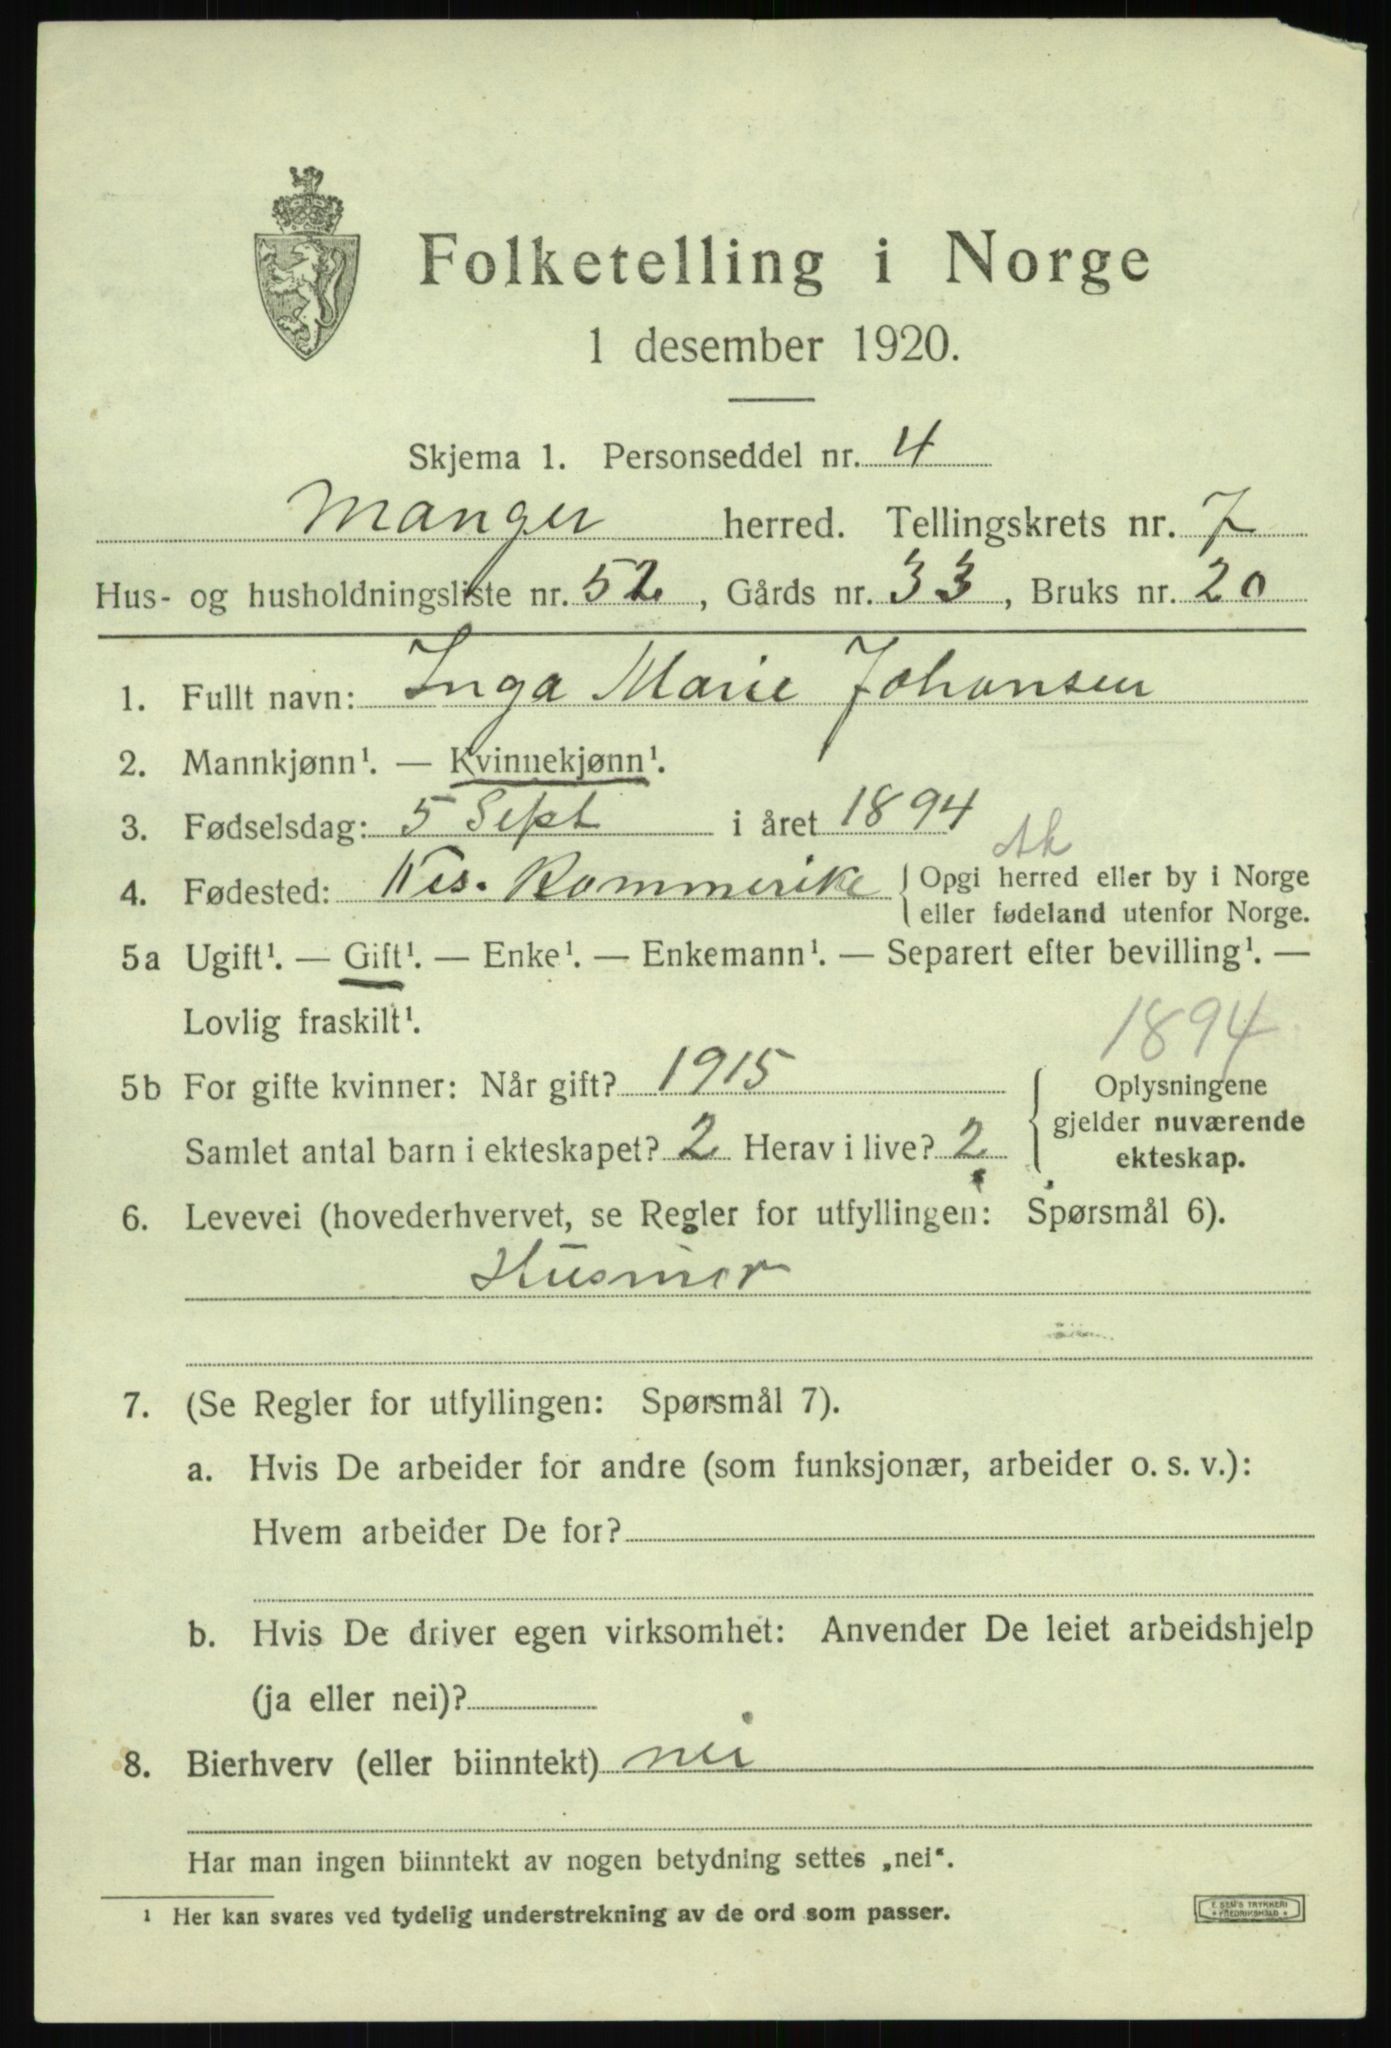 Folketelling i Norge
1 desember 1920.
Skjema 1. Personseddel nr. 4
Manger herred. Tellingskrets nr. 7
Hus- og husholdningsliste nr. 52, Gårds nr. 33, Bruks nr. 20
1. Fullt navn: Inga Marie Johansen
2. Mannkjønn¹. — Kvinnekjønn¹.
3. Fødselsdag: 5 Sept i året 1894
Ak
4. Fødested: Nes. Rommerike { Opgi herred eller by i Norge
eller fødeland utenfor Norge.
5a Ugift¹. — Gift¹. — Enke¹. — Enkemann¹. — Separert efter bevilling¹. —
Lovlig fraskilt¹.
1894
5b For gifte kvinner: Når gift? 1915
Samlet antal barn i ekteskapet? 2 Herav i live? 2
Oplysningene
gjelder nuværende
ekteskap.
6. Levevei (hovederhvervet, se Regler for utfyllingen: Spørsmål 6).
Husmor
7. (Se Regler for utfyllingen: Spørsmål 7).
a. Hvis De arbeider for andre (som funksjonær, arbeider o. s. v.):
Hvem arbeider De for?
b. Hvis De driver egen virksomhet: Anvender De leiet arbeidshjelp
(ja eller nei)?
8. Bierhverv (eller biinntekt) nei
Har man ingen biinntekt av nogen betydning settes „nei“.
¹ Her kan svares ved tydelig understrekning av de ord som passer.
E. SEM'S TRYKKERI
FREDRIKSHALD